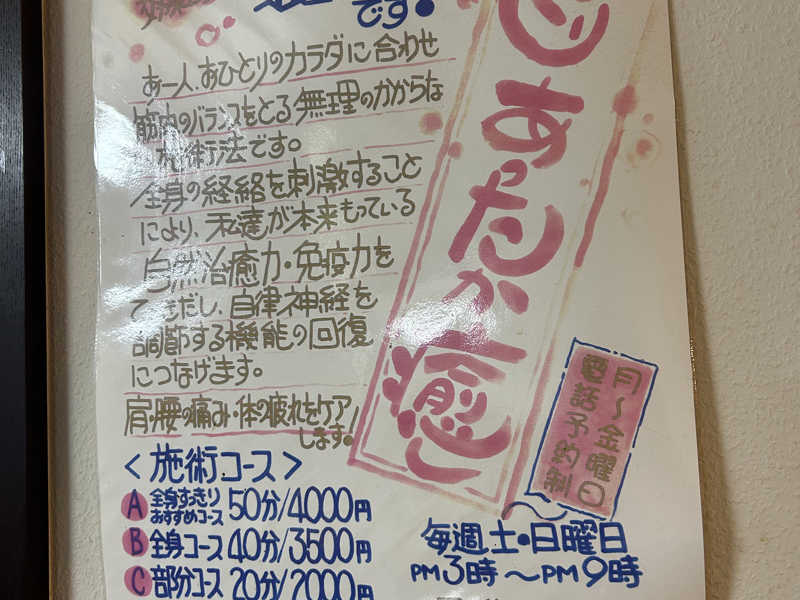 です。
お一人、おひとりのカラダに合わせ
筋肉のバランスをとる無理のかからな
施術法です。
全身の経絡を刺激すること
により、私達が本来もっている
自然治癒力・免疫力を
てだし、自律神経を
調節する機能の回復
につなげます。
肩・腰の痛み・体の疲れをケア
します。
あったか癒し
月〜金曜日
電話予約制
<施術コース>
A 全身すっきりおすすめコース 50分/4000円
B 全身コース 40分/3500円
C 部分コース 20分/2000円
毎週土・日曜日
PM3時〜PM9時